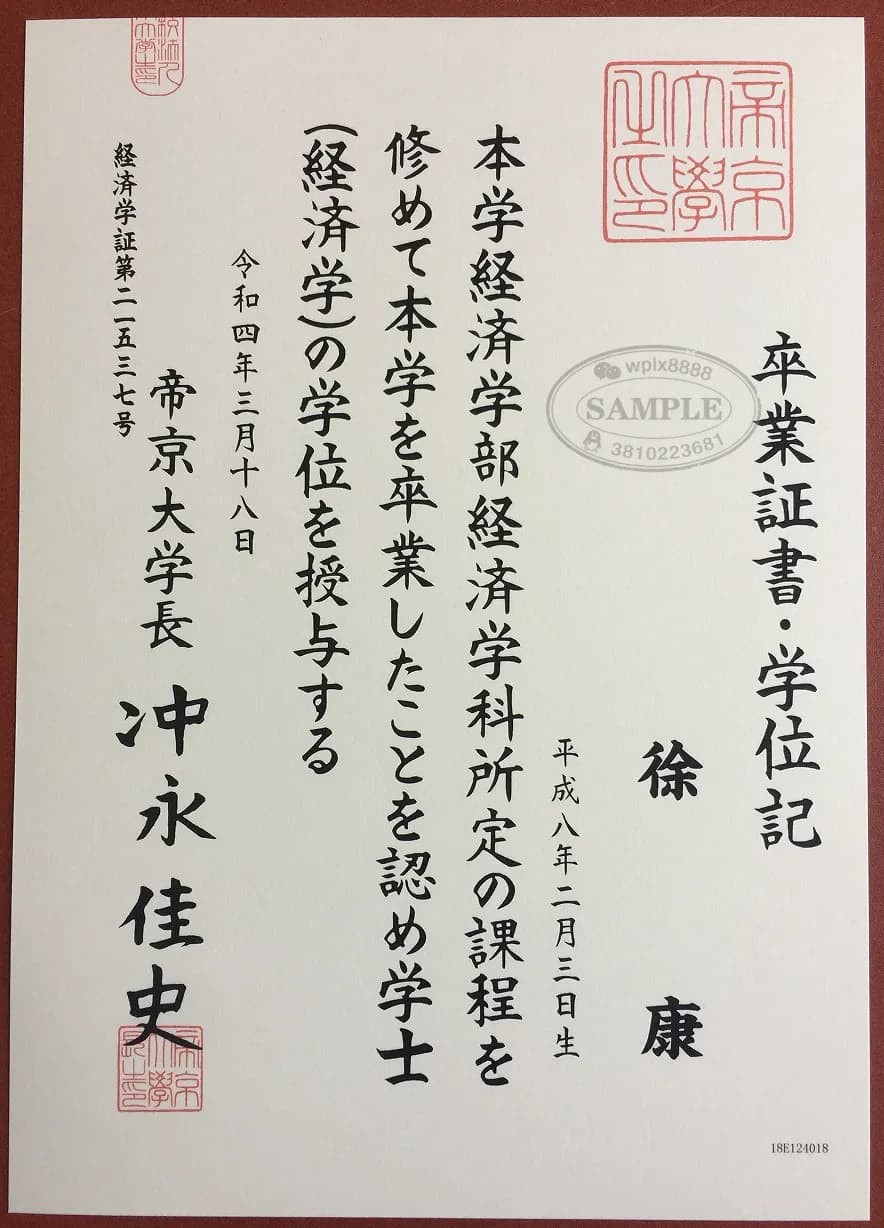 帝京
大學
之印
卒業証書・学位記
徐 康
平成八年二月三日生
本学経済学部経済学科所定の課程を
修めて本学を卒業したことを認め学士
(経済学)の学位を授与する
令和四年三月十八日
帝京大学長 冲永佳史
帝京
大學
長之印
経済学証第二一五三七号
wplx8888
SAMPLE
3810223681
18E124018